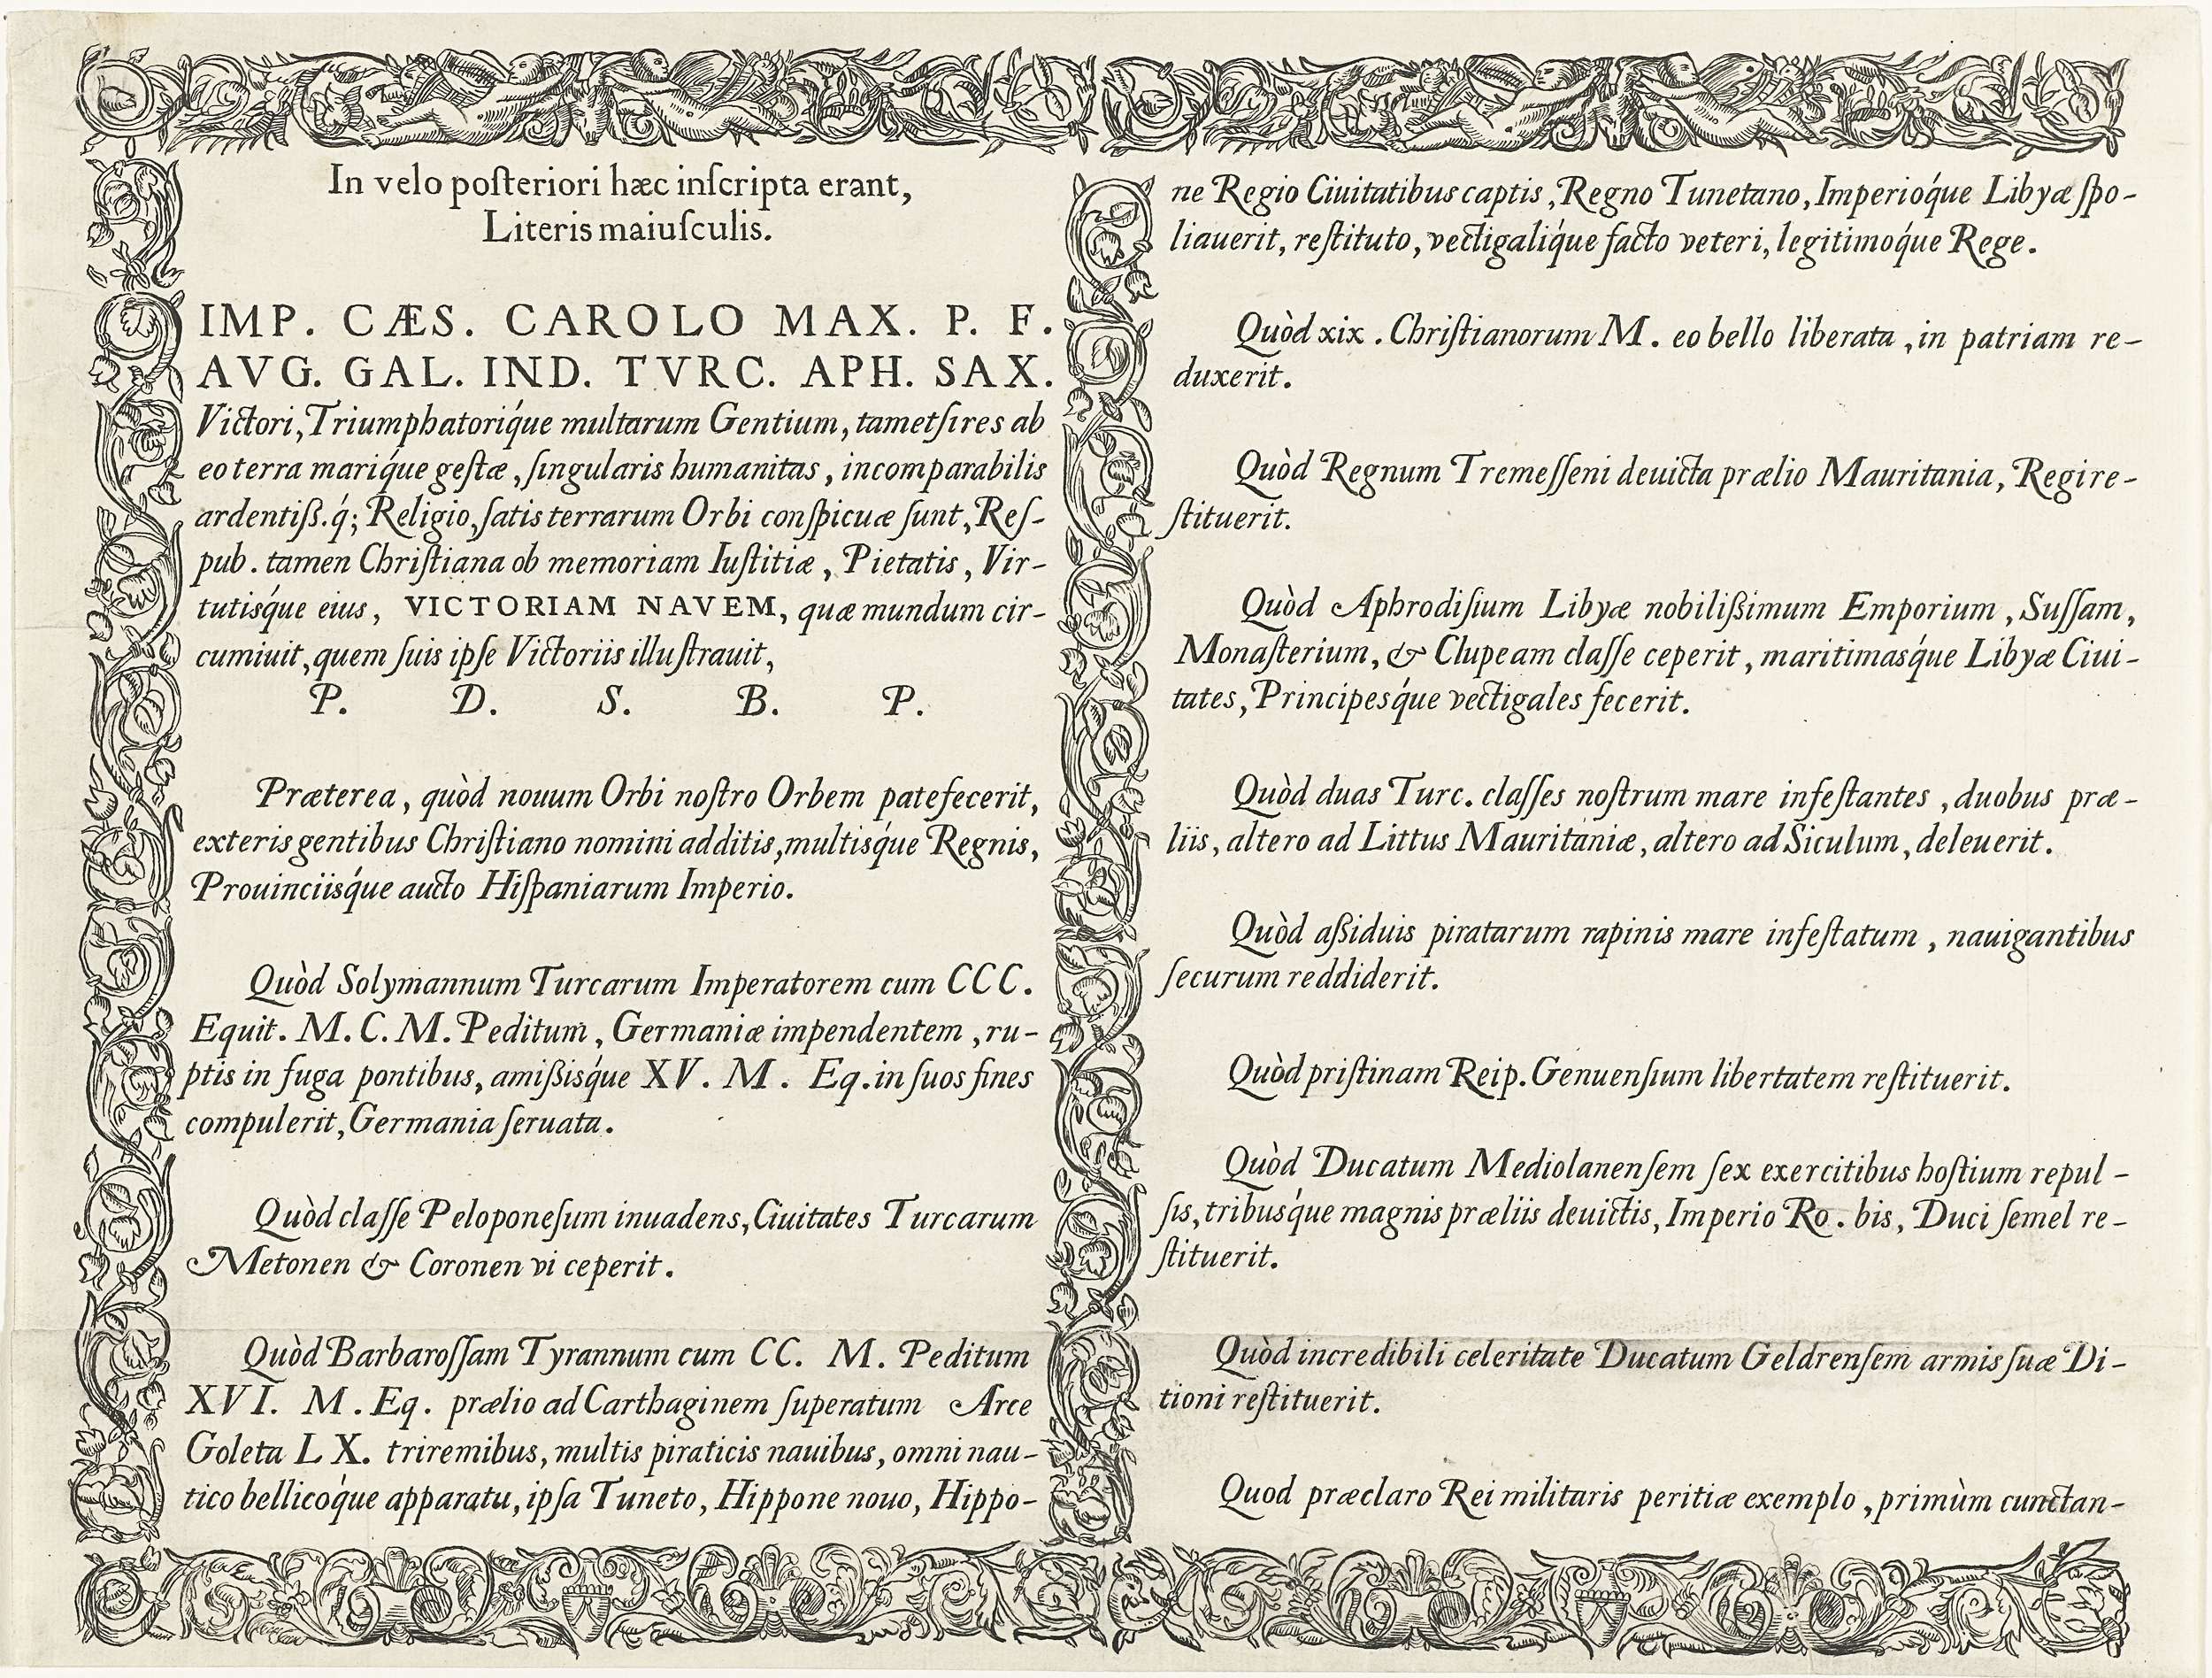 In velo poſteriori hæc inſcripta erant,
Literis maiuſculis.
IMP. CÆS. CAROLO MAX. P. F.
AVG. GAL. IND. TVRC. APH. SAX.
Victori, Triumphatoriq́ue multarum Gentium, tametſi res ab
eo terra mariq́ue geſtæ, ſingularis humanitas, incomparabilis
ardentiß.q́; Religio, ſatis terrarum Orbi conſpicuæ ſunt, Reſ-
pub. tamen Chriſtiana ob memoriam Iuſtitiæ, Pietatis, Vir-
tutisq́ue eius, VICTORIAM NAVEM, quæ mundum cir-
cumiuit, quem ſuis ipſe Victoriis illuſtrauit,
P. D. S. B. P.
Præterea, quòd nouum Orbi noſtro Orbem patefecerit,
exteris gentibus Chriſtiano nomini additis, multisq́ue Regnis,
Prouinciisq́ue aucto Hiſpaniarum Imperio.
Quòd Solymannum Turcarum Imperatorem cum CCC.
Equit. M. C. M. Peditum, Germaniæ impendentem, ru-
ptis in fuga pontibus, amißisq́ue XV. M. Eq. in ſuos fines
compulerit, Germania ſeruata.
Quòd claſſe Peloponeſum inuadens, Ciuitates Turcarum
Metonen & Coronen vi ceperit.
Quòd Barbaroſſam Tyrannum cum CC. M. Peditum
XVI. M. Eq. prælio ad Carthaginem ſuperatum Arce
Goleta LX. triremibus, multis piraticis nauibus, omni nau-
tico bellicoq́ue apparatu, ipſa Tuneto, Hippone nouo, Hippo-
ne Regio Ciuitatibus captis, Regno Tunetano, Imperioq́ue Libyæ ſpo-
liauerit, reſtituto, vectigaliq́ue facto veteri, legitimoq́ue Rege.
Quòd xix. Chriſtianorum M. eo bello liberata, in patriam re-
duxerit.
Quòd Regnum Tremeſſeni deuicta prælio Mauritania, Regi re-
ſtituerit.
Quòd Aphrodiſium Libyæ nobilißimum Emporium, Suſſam,
Monaſterium, & Clupeam claſſe ceperit, maritimasq́ue Libyæ Ciui-
tates, Principesq́ue vectigales fecerit.
Quòd duas Turc. claſſes noſtrum mare infeſtantes, duobus præ-
liis, altero ad Littus Mauritaniæ, altero ad Siculum, deleuerit.
Quòd aßiduis piratarum rapinis mare infeſtatum, nauigantibus
ſecurum reddiderit.
Quòd priſtinam Reip. Genuenſium libertatem reſtituerit.
Quòd Ducatum Mediolanenſem ſex exercitibus hoſtium repul-
ſis, tribusq́ue magnis præliis deuictis, Imperio Ro. bis, Duci ſemel re-
ſtituerit.
Quòd incredibili celeritate Ducatum Geldrenſem armis ſuæ Di-
tioni reſtituerit.
Quod præclaro Rei militaris peritiæ exemplo, primùm cunctan-